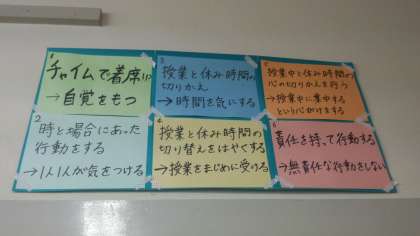 1
チャイムで着席
→自覚をもつ
2
時と場合にあった
行動をする
→1人1人が気をつける
3
授業と休み時間の
切りかえ
→時間を気にする
4
授業と休み時間の
切り替えをはやくする
→授業をまじめに受ける
5
授業中と休み時間の
心の切りかえを行う
→授業中に集中する
という心がけをする
6
責任を持って行動する
→無責任な行動をしない